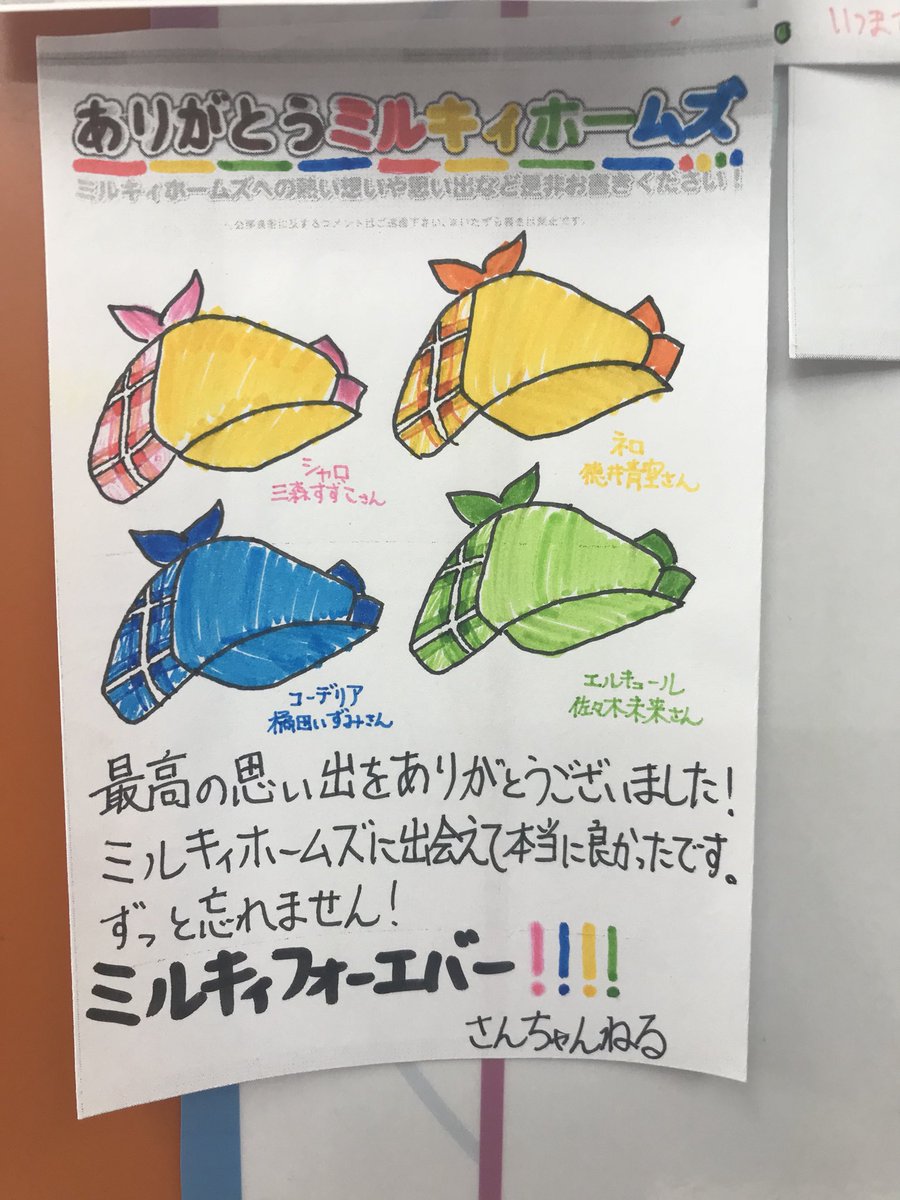 いつまで
ありがとうミルキィホームズ
ミルキィホームズへの熱い想いや思い出など是非お書きください！
シャロ
三森すずこさん
ネロ
徳井青空さん
コーデリア
橘田いずみさん
エルキュール
佐々木未来さん
最高の思い出をありがとうございました！
ミルキィホームズに出会えて本当に良かったです。
ずっと忘れません！
ミルキィフォーエバー！！！！
さんちゃんねる